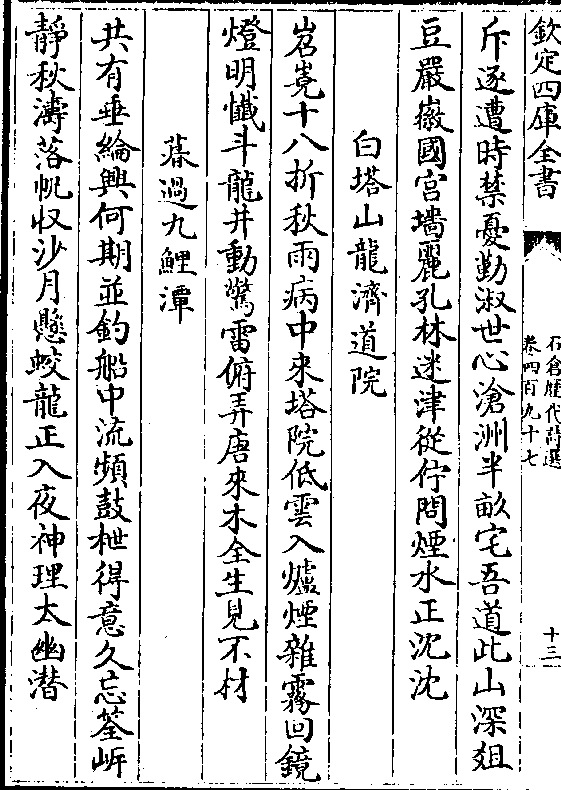 欽定四庫全書
石倉歷代詩選
卷四百九十七
十三
斥逐遭時禁憂勤淑世心滄洲半畝宅吾道此山深俎
豆嚴徽國宮墻麗孔林迷津從佇問煙水正沈沈
白塔山龍濟道院
岧嶤十八折秋雨病中來塔院低雲入爐煙雜霧回鏡
燈明懺斗龍井動驚雷俯弄唐來木全生見不材
暮過九鯉潭
共有垂綸興何期並釣船中流頻鼓枻得意久忘筌岍
靜秋濤落帆收沙月懸蛟龍正入夜神理太幽潜